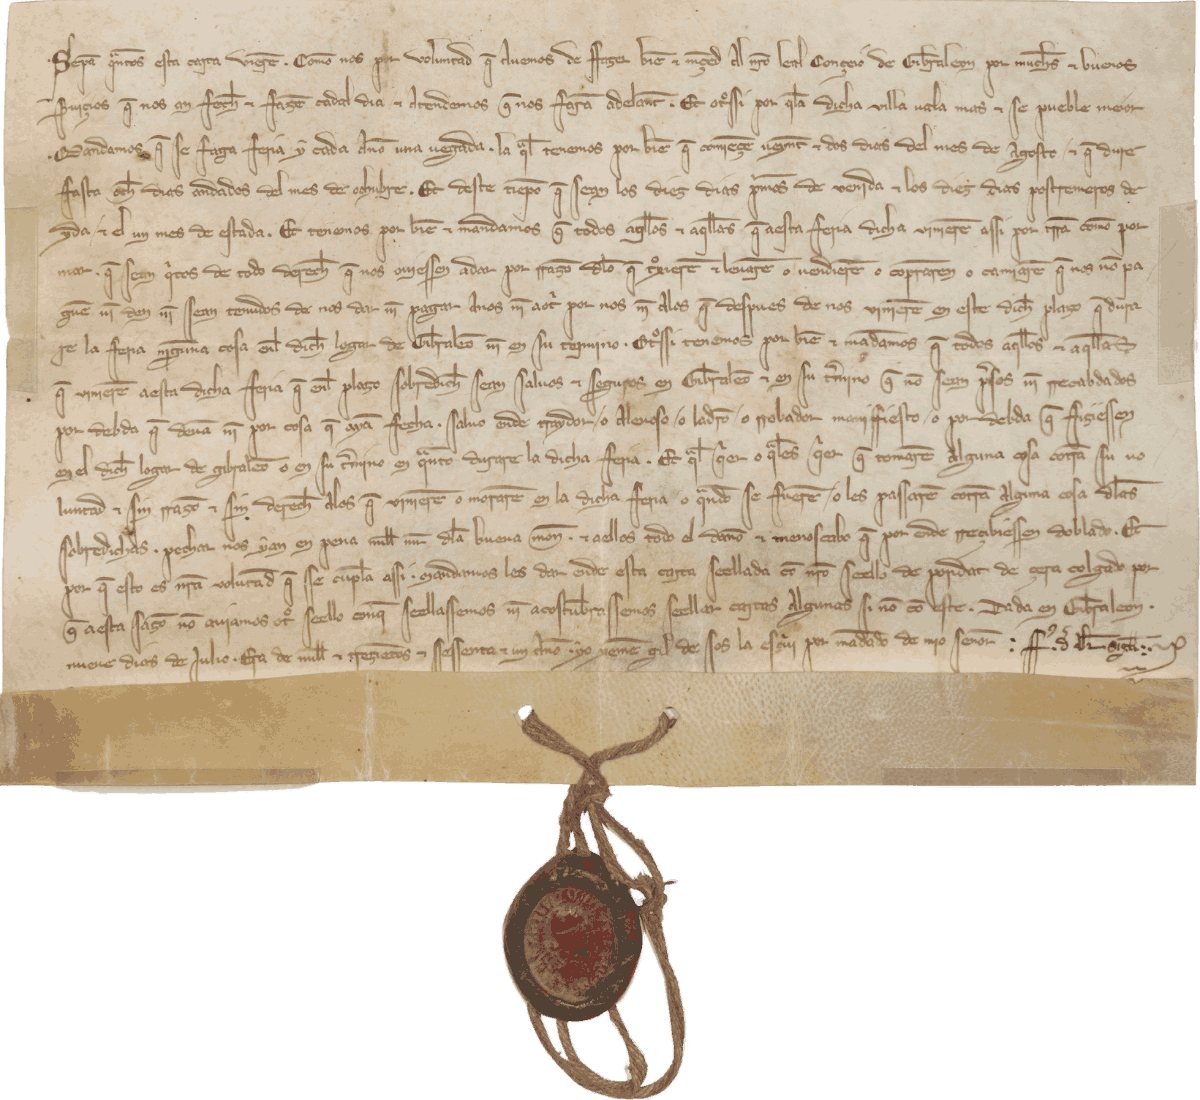 Sepā q̄ntos esta carta vierē . Como nos por voluntad q̄ avemos de ffazer biē ⁊ mçed al nr̄o leal Conçeio de Gib̄raleon por muchos ⁊ buenos
s̄uiçios q̄ nos an fech̄ ⁊ fazē cadal dia ⁊ atendemos q̄ nos farā adelant̄ . Et ot̄ssi por q̄ la dicha villa vala mas ⁊ se pueble meior
Mandamos q̄ se faga feria y cada año una vegada . la q̄l tenemos por biē q̄ comieçe veynt̄ ⁊ dos dias del mes de Agosto ⁊ q̄ dure
fasta och̄ dias andados del mes de ochubre . Et deste tiēpo q̄ sean los diez dias p̄meros de venida ⁊ los diez dias postremeros de
yda ⁊ el un mes de estada . Et tenemos por biē ⁊ mādamos q̄ todos aq̄llos ⁊ aq̄llas q̄ aesta feria dicha vinierē assi por tr̄ra como por
mar . q̄ sean q̄tos de todo derech̄ q̄ nos oviessen adar por razō dlo q̄ t̄xierē ⁊ levarē o vendierē o cōpraren o camiarē q̄ nos nō pa
guē nī den nī sean tenudos de nos dar nī pagar anos nī aot̄ por nos nī alos q̄ despues de nos vinierē en este dich̄ plazo q̄ dura
re la feria nīguna cosa enl dich̄ logar de Gib̄raleō nī en su termino . Ot̄ssi tenemos por biē ⁊ mādamos q̄ todos aq̄llos ⁊ aq̄llas
q̄ vinierē aesta dicha feria q̄ enl plazo sobredich̄ sean salvos ⁊ seguros en Gib̄raleō ⁊ en su t̄mino q̄ nō sean p̄sos nī recabdados
por debda q̄ devā nī por cosa q̄ ayā fecha . salvo ende traydor / o alevoso / o ladrō / o robador maniffiesto / o por debda q̄ fiziessen
en el dich̄ logar de gibraleō o en su t̄mino en q̄nto durare la dicha feria . Et q̄l q̄er o q̄les q̄er q̄ tomarē alguna cosa cont̄ra su vo
luntad ⁊ sin razō ⁊ sin derech̄ alos q̄ vinierē o morarē en la dicha feria o q̄ndo se fuerē / o les passarē cont̄ra alguna cosa dlas
sobredichas . pechar nos yan en pena mill mr̄ dla buena mon̄ . ⁊ aellos todo el daño ⁊ menoscabo q̄ por ende reçibiessen doblado . Et
por q̄ esto es nr̄a volutad q̄ sse cūpla assi . Mandamos les dar ende esta carta seellada cō nr̄o seello de poridat de çera colgado por
q̄ aesta sazō nō aviamos ot̄ seello conq̄ seellassemos nī acostūbrassemos seellar cartas algunas si nō cō este . Dada en Gib̄raleon .
nueve dias de Julio . Era de mill ⁊ trezietos ⁊ sessenta ⁊ un año . yo yeñeme gil de sos la esc̄vi por mādado de mio señor :